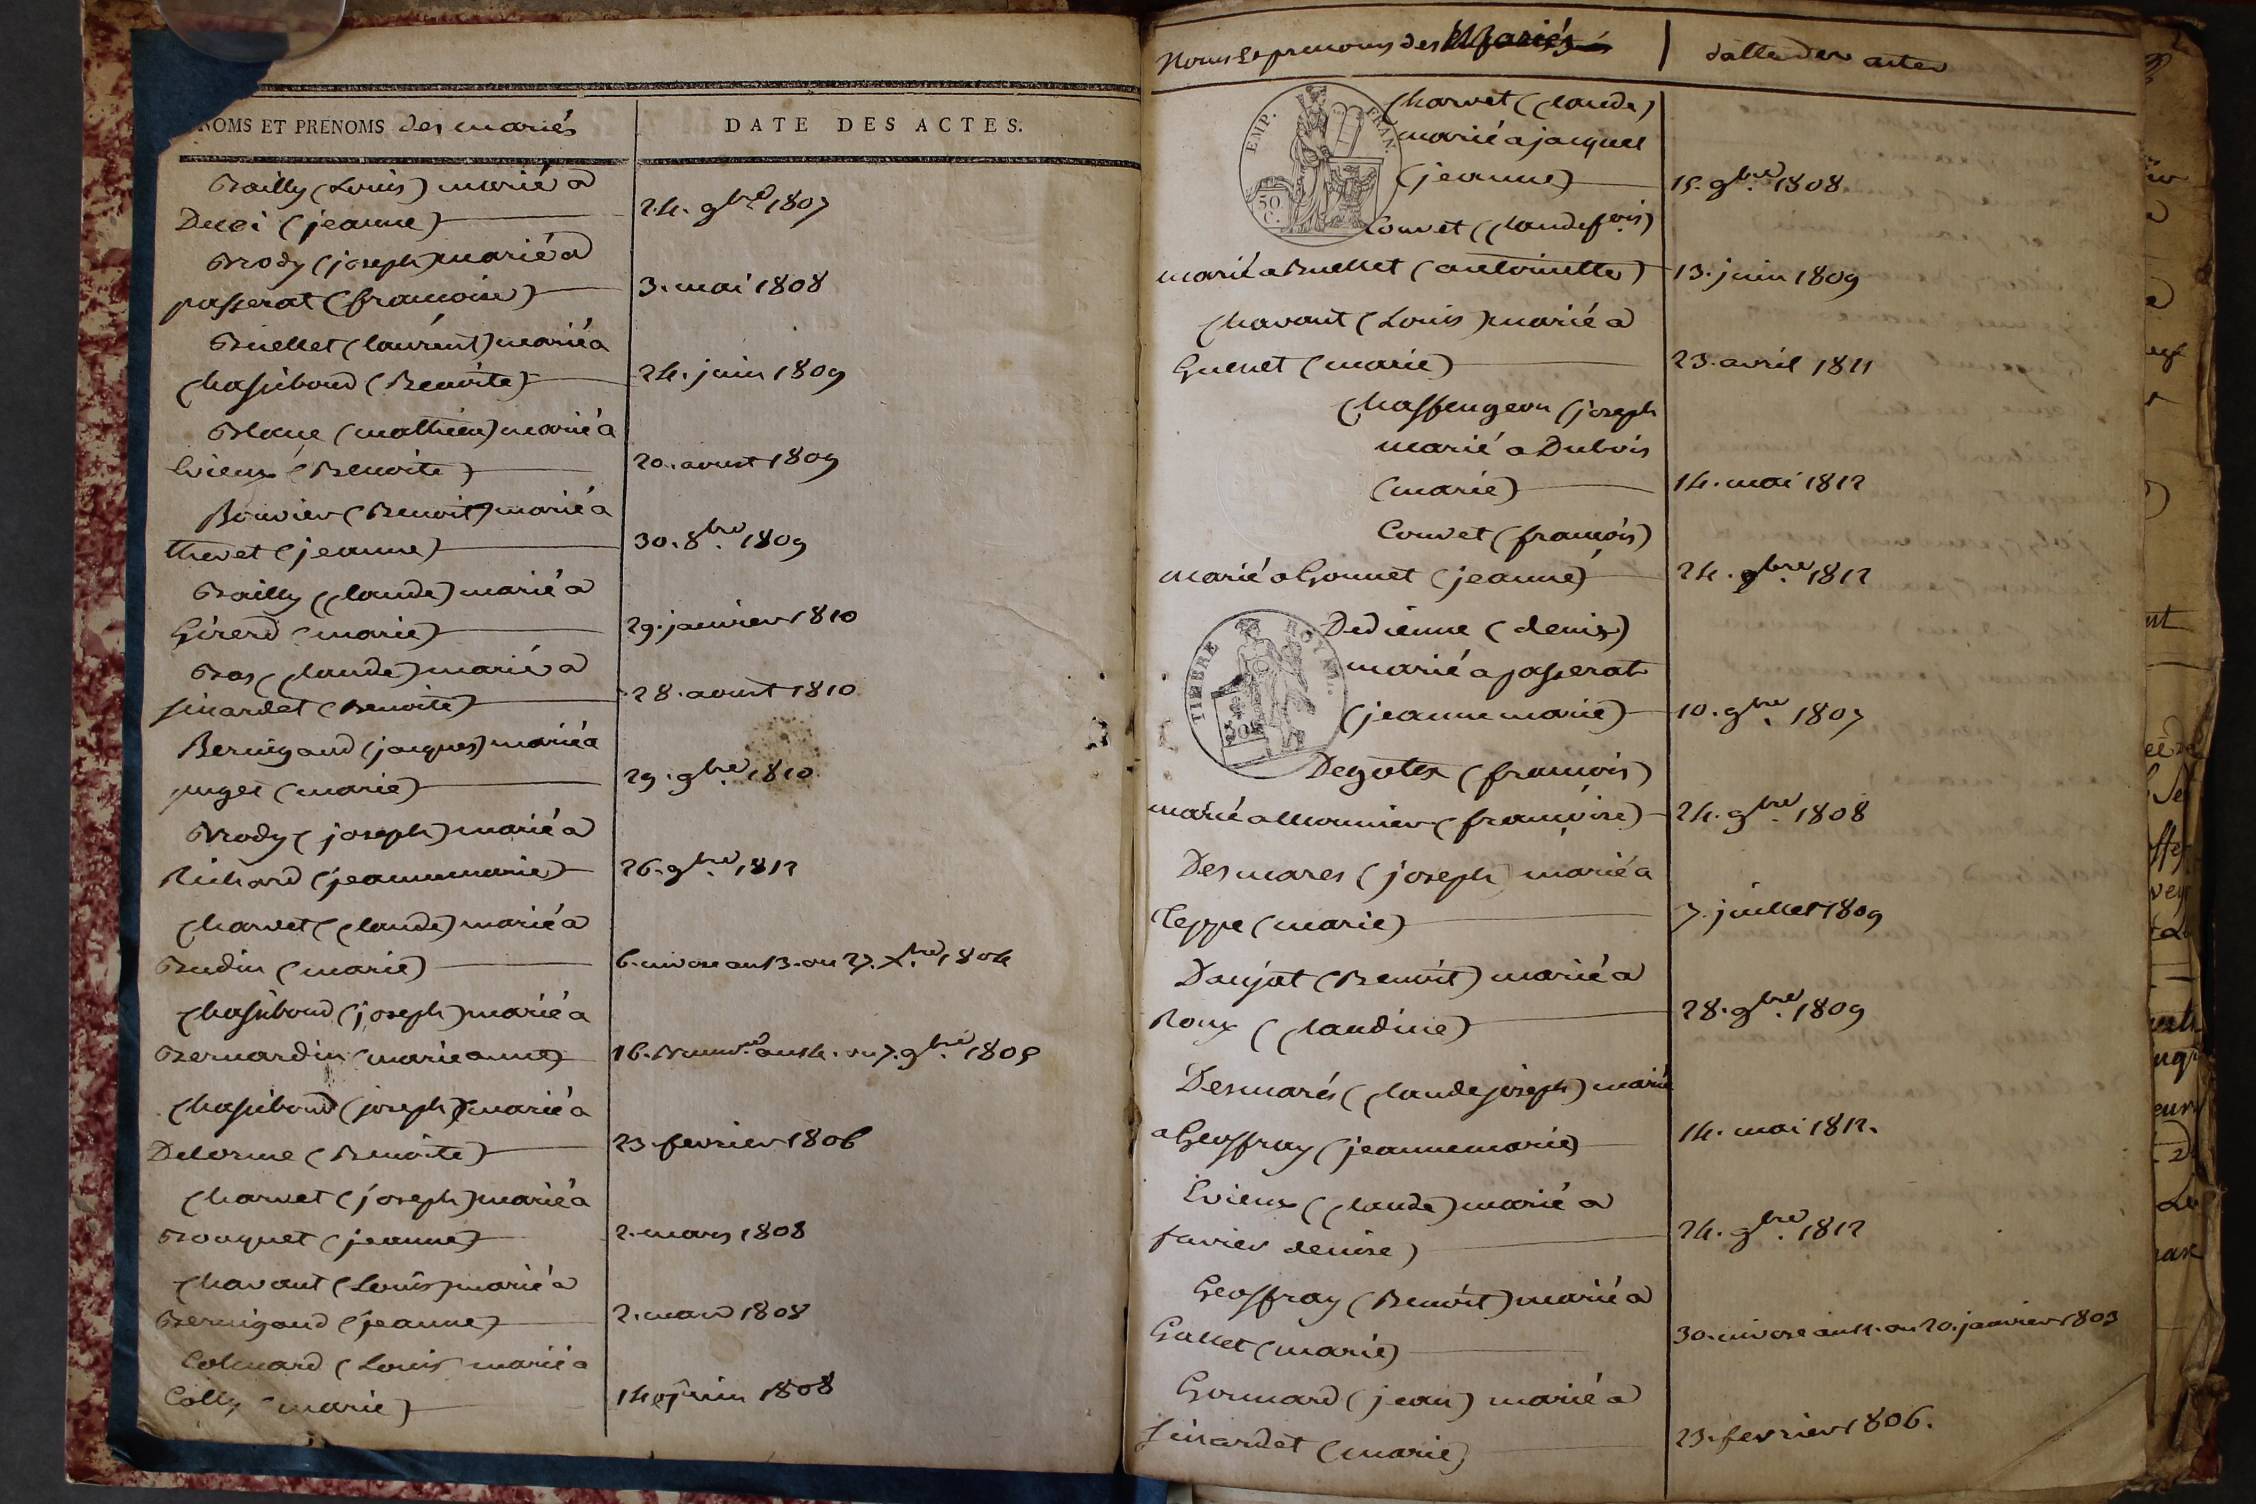 NOMS ET PRENOMS des mariés
DATE DES ACTES.
Bailly (Louis) marié a
Ducoi (jeanne)
24. 9bre 1807
Brody (joseph) marié a
passerat (francoise)
3. mai 1808
Buellet (laurent) marié a
Chassiboud (Benoite)
24. juin 1809
Blanc (mathieu) marié a
Evieux (Benoite)
20. aoust 1809
Bouvier (Benoit) marié a
thevet (jeanne)
30. 8bre 1809
Bailly (Claude) marié a
Girerd (marie)
29. janvier 1810
Bas (Claude) marié a
sinardet (Benoite)
28. aoust 1810
Bernigaud (jacques) marié a
puget (marie)
29. 9bre 1810
Brody (joseph) marié a
Richard (jeanne marie)
26. 9bre 1812
Charvet (Claude) marié a
Budin (marie)
6. nivose an 13. ou 27. Xbre 1804
Chassiboud (joseph) marié a
Bernardin (marie anne)
16. Brumre an 14. ou 7. 9bre 1805
Chassiboud (joseph) marié a
Delorme (Benoite)
23. fevrier 1806
Charvet (joseph) marié a
Bouquet (jeanne)
2. mars 1808
Chavant (Louis) marié a
Bernigaud (jeanne)
2. mars 1808
Colmard (Louis marié a
Colly (marie)
14 juin 1808
Noms Et prenoms des Mariés
datte des actes
EMP. FRAN.
50 C.
Charvet (Claude)
marié a jacquet
(jeanne)
15. 9bre 1808
Couvet (Claude fois)
marié a Buellet (antoinette)
13. juin 1809
Chavant (Louis) marié a
Guenet (marie)
23. avril 1811
Chaffengeon (joseph
marié a Dubois
(marie)
14. mai 1812
Couvet (francois)
marié a Gonnet (jeanne)
24. 9bre 1812
TIMBRE ROYAL.
Dedienne (denis)
marié a passerat
(jeanne marie)
10. 9bre 1807
Degotex (francois)
marié a Monnier (francoise)
24. 9bre 1808
Desmares (joseph) marié a
teppe (marie)
7. juillet 1809
Daujat (Benoit) marié a
Roux (Claudine)
28. 9bre 1809
Desmarés (Claude joseph) marié
a Geoffray (jeanne marie)
14. mai 1812.
Evieux (Claude) marié a
favier denise)
24. 9bre 1812
Geoffray (Benoit) marié a
Gallet (marie)
30. nivose an 11. ou 20. janvier 1803
Gonnard (jean) marié a
sinardet (marie)
23. fevrier 1806.